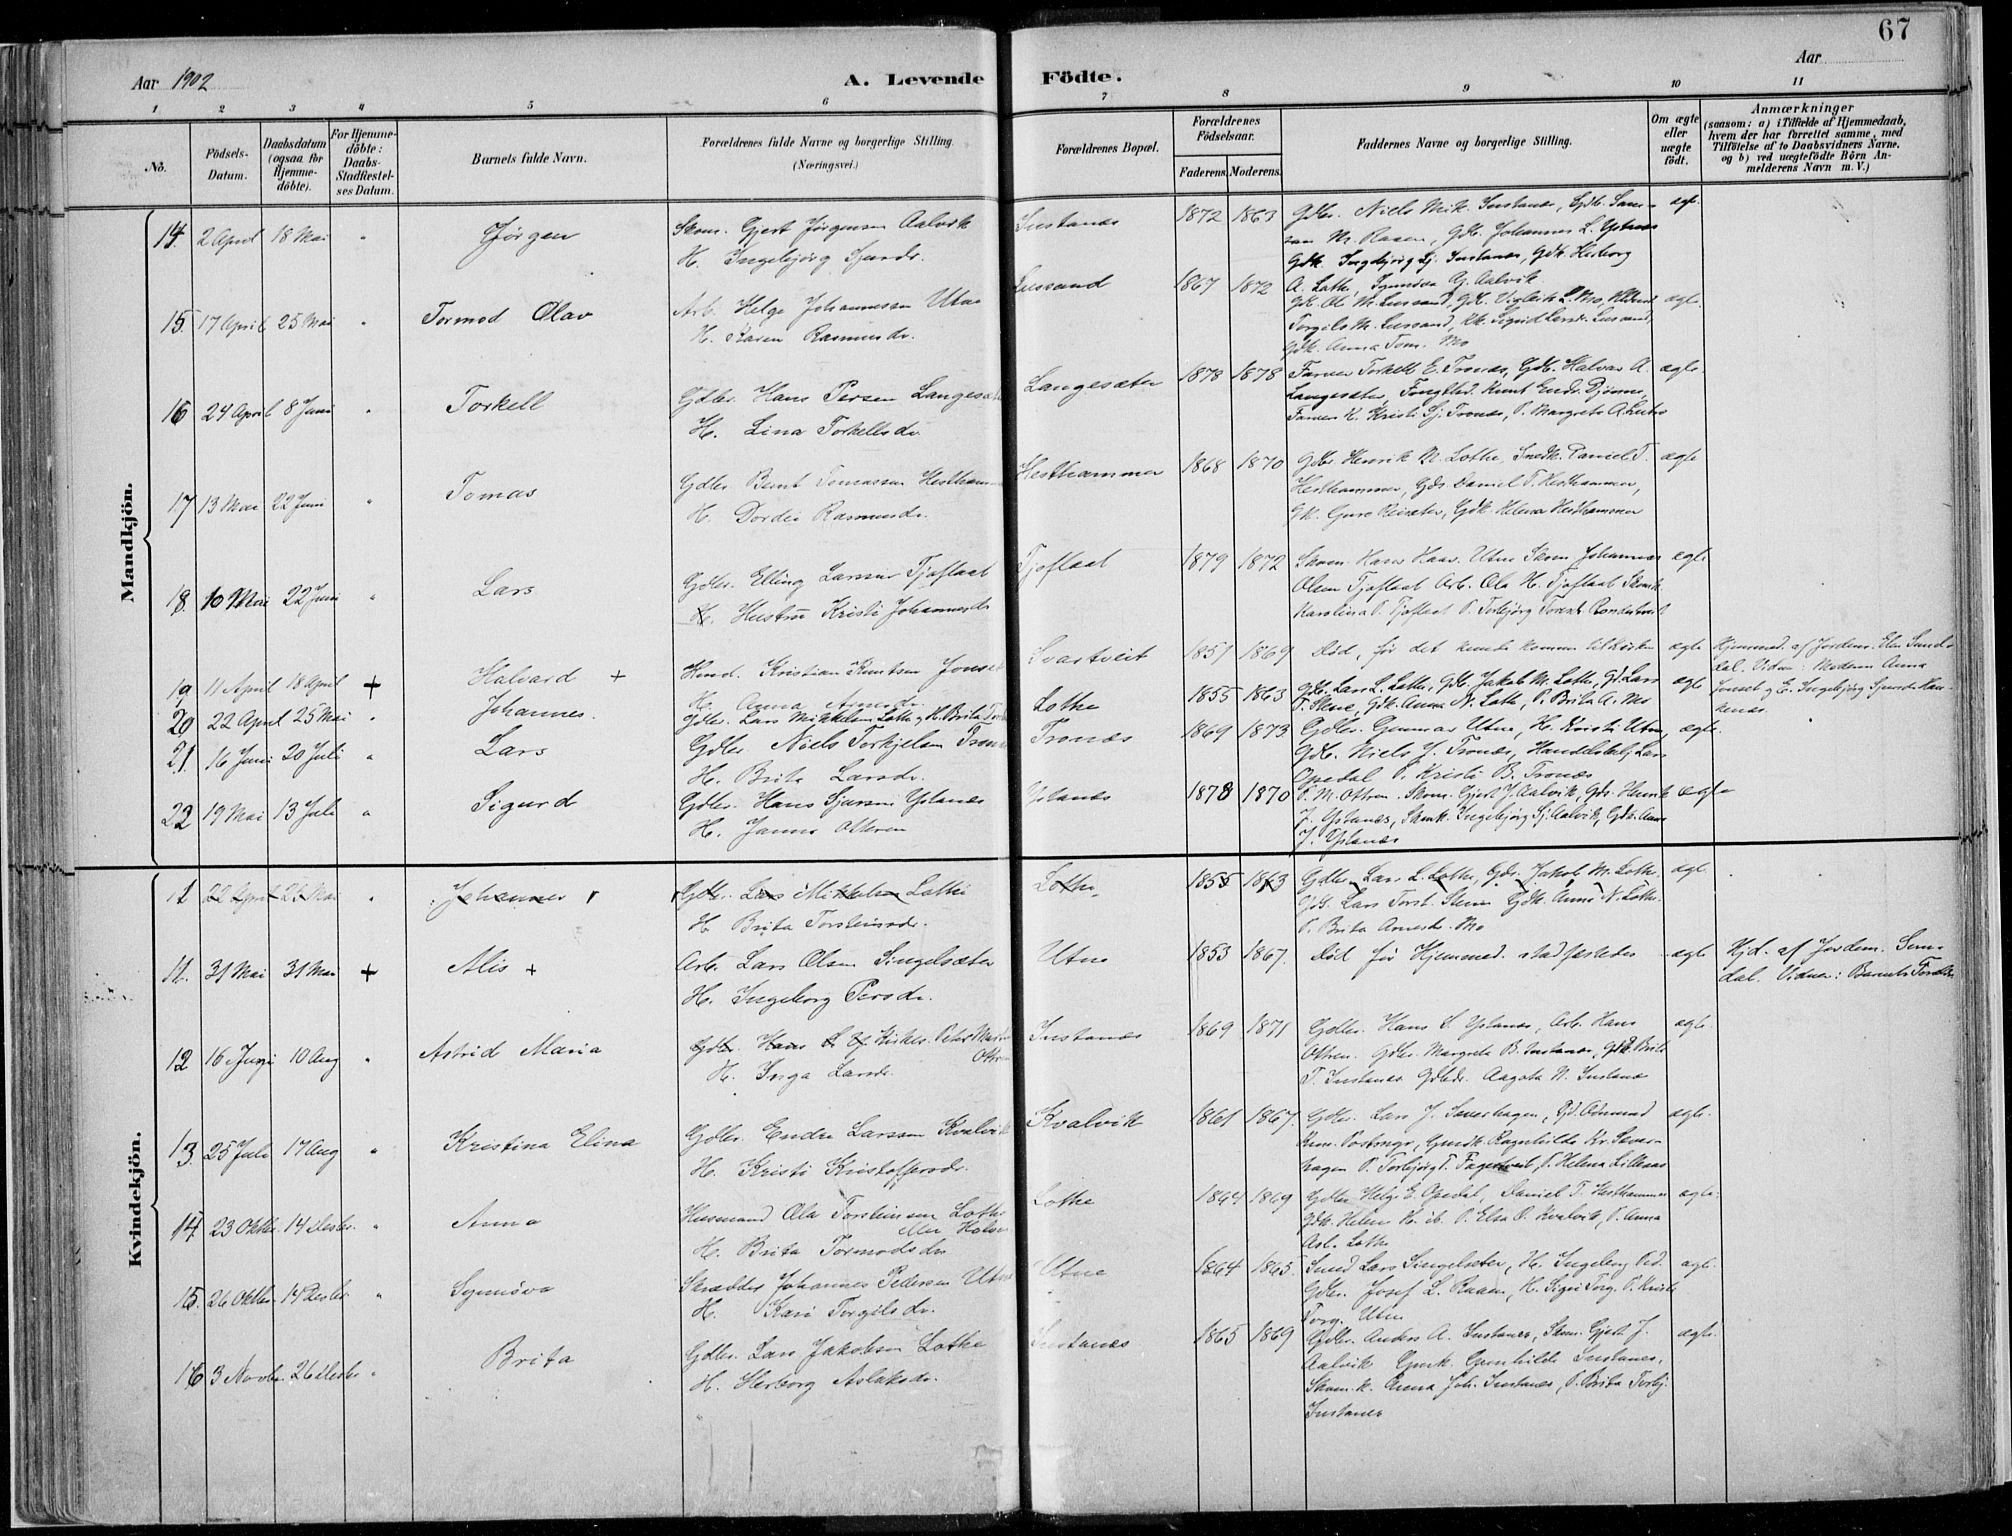 67
Aar 1902
A. Levende Födte.
Aar
1 2 3 4 5 6 7 8 9 10 11
No.
Födsels-Datum.
Daabsdatum (ogsaa for Hjemme-döbte).
For Hjemme-döbte: Daabs-Stadfæstel-ses Datum.
Barnets fulde Navn.
Forældrenes fulde Navne og borgerlige Stilling.
(Næringsvei.)
Forældrenes Bopæl.
Forældrenes Födselsaar.
Faderens. Moderens.
Faddernes Navne og borgerlige Stilling.
Om ægte eller uægte födt.
Anmærkninger
(saasom: a) i Tilfælde af Hjemmedaab,
hvem der har forrettet samme, med
Tilföielse af to Daabsvidners Navne,
og b) ved uægtefödte Börn An-
melderens Navn m. V.)
Mandkjön.
14. 2 April 18 Mai " Jörgen
Skom. Gjert Jörgensen Aalvik
H. Ingebjörg Sjursdr.
Instanes 1872 1863
Gdbr. Niels Mik. Instanes, Gdb. Lars
Gdk. Ingebjörg Sj. Instanes, Gdk. Herborg
A. Lothe, Synnöva Aalvik
15. 17 April 25 Mai " Tormod Olav
Arb. Helge Johannessen Utne
H. Karen Rasmusdr.
Lussand 1867 1872
Torgils M. Lussand, Sigrid Larsdr. Lussand,
Gdk. Anna Tom. Mo
ægte.
16 24 April 8 Juni " Torkell
Gdbr. Hans Persen Langesæter
H. Lina Torkellsdr.
Langesæter 1878 1878
Farver Torkell E. Tronæs, Gdb. Halvar A.
Langesæter, Knut Endr. Djönne,
Farver K. Kristi Sj. Tronæs, P. Margreta A. Lutro
ægte.
17 13 Mai 22 Juni " Tomas
Gdbr. Bernt Tomassen Hesthammer
H. Dordei Rasmusdr.
Hesthammer 1868 1870
Gdbr. Henrik M. Lothe, Snedk. Daniel T.
Hesthammer, Gdr. Daniel T. Hesthammer,
Gk. Guro Reisæter, Gdk. Helena Hesthammer
ægte
18. 10 Mai 22 Juni " Lars
Gdbr. Elling Larssen Tjoflaat
H. Hustru Kristi Johannesdr.
Tjoflaat 1879 1872
Skom. Hans Haav. Utne Skom Johannes
Olsen Tjoflaat Arb. Ola H. Tjoflaat
Karolina P. Tjoflaat P. Torbjörg
ægte
19 11 April 18 April + Halvard +
Hmd. Kristian Knutsen Jonset
H. Anna
Svartveit 1851 1869
Död, før det kunde komme til kirken ægte
Hjemmed. af Jordem. Elen Sun-
dal. Vidner: Moderen Anna
Jonset og E. Ingebjörg
20 22 April 25 Mai " Johannes.
Gdbr. Lars Mikkelsen Lothe og H. Brita
Lothe 1855 1863
Gdb. Lars L. Lothe, Gdb. Jakob M. Lothe, Gd. Lars
T. Skeie, Gdk. Anna N. Lothe, P. Brita A. Mo
ægte
21. 16 Juni 20 Juli " Lars
Gdbr Niels Torkjelsen Tronæs
H. Brita Larsdr.
Tronæs 1869 1873
Gdbr. Gunnar Utne, H. Kristi Utne,
Gdb. Niels J. Tronæs, Handelsbetj. Lars
Opedal P. Kristi B. Tronæs
ægte.
22 19 Mai 13 Juli " Sigurd
Gdbr. Hans Sjursen Ystanes
H. Janna Ottren
Ystanes 1878 1870
P. M. Ottren. Skom. Gjert J. Aalvik, Gdr. Henrik
J. Ystanes, Skmk. Ingebjörg Sj. Aalvik, Gdk. Anna
J. Ystanes
ægte
Kvindekjön.
11 22 April 25 Mai " Johannes
Gdbr. Lars Mikkelsen Lothe
H. Brita Torsteinsdr.
Lothe 1855 1863
Gdbr. Lars L. Lothe, Gdr. Jakob M. Lothe.
Gdb. Lars Torst. Skeie Gdk. Anna N. Lothe.
P. Brita Arnesdr. Mo
ægte.
11. 31 Mai 31 Mai + Alis +
Arb. Lars Olsen Singelsæter
H. Ingeborg Persdr.
Utne 1853 1867.
Död før Hjemmed. stadfæstedes ægte
Hjd. af Jordem. Sun-
dal. Vidner: Barnets Forældre
12 16 Juni 10 Aug " Astrid Maria
Gdbr. Hans S. Kirkes. Peter Martin Ottren
H. Inga Larsdr.
Instanes 1869 1871
Gdbr. Hans S. Ystanes, Arb. Hans
Ottren. Gdbr. Margreta B. Instanes, Gdk. Brita
T. Instanes Gdbdr. Aagota N. Instanes
ægte.
13. 25 Juli 17 Aug " Kristina Elina
Gdbr. Endre Larssen Kvalvik
H. Kristi Kristoffersdr.
Kvalvik 1861 1867.
Gdbr. Lars J. Samhagen, Gd. Odmund
hagen P. Torbjörg T. Fagertveit, P. Helena Lillenes
ægte.
14. 23 Oktbr. 14 Desbr. " Anna
Husmand Ola Torsteinsen Lothe
eller Holven
H. Brita Tormodsdr.
Lothe 1864 1869
Gdbr Helge E. Opedal, Daniel T. Hesthammer
Gdk. Helena H. ib. P. Elsa O. Kvalvik, P. Anna
Asl. Lothe
ægte.
15. 26 Oktbr. 14 Desbr. " Synnöva
Skrædder Johannes Pedersen Utne
H. Kari Torgilsdr.
Utne 1864 1865.
Smed Lars Singelsæter, H. Ingeborg Ped.
Gdbr. Josef L. Raaen, H. Sigri Torg. P. Kristi
Torg. Utne
ægte.
16 3 Novbr. 26 Desbr. " Brita
Gdbr. Lars Jakobsen Lothe
H. Herborg Aslaksdr.
Instanes 1865 1869
Gdbr. Anders A. Instanes, Skom. Gjert J.
Aalvik Gmk. Gunhilda Instanes,
Skom. k. Anna Joh. Instanes, P. Brita Torbj.
Instanes
ægte.